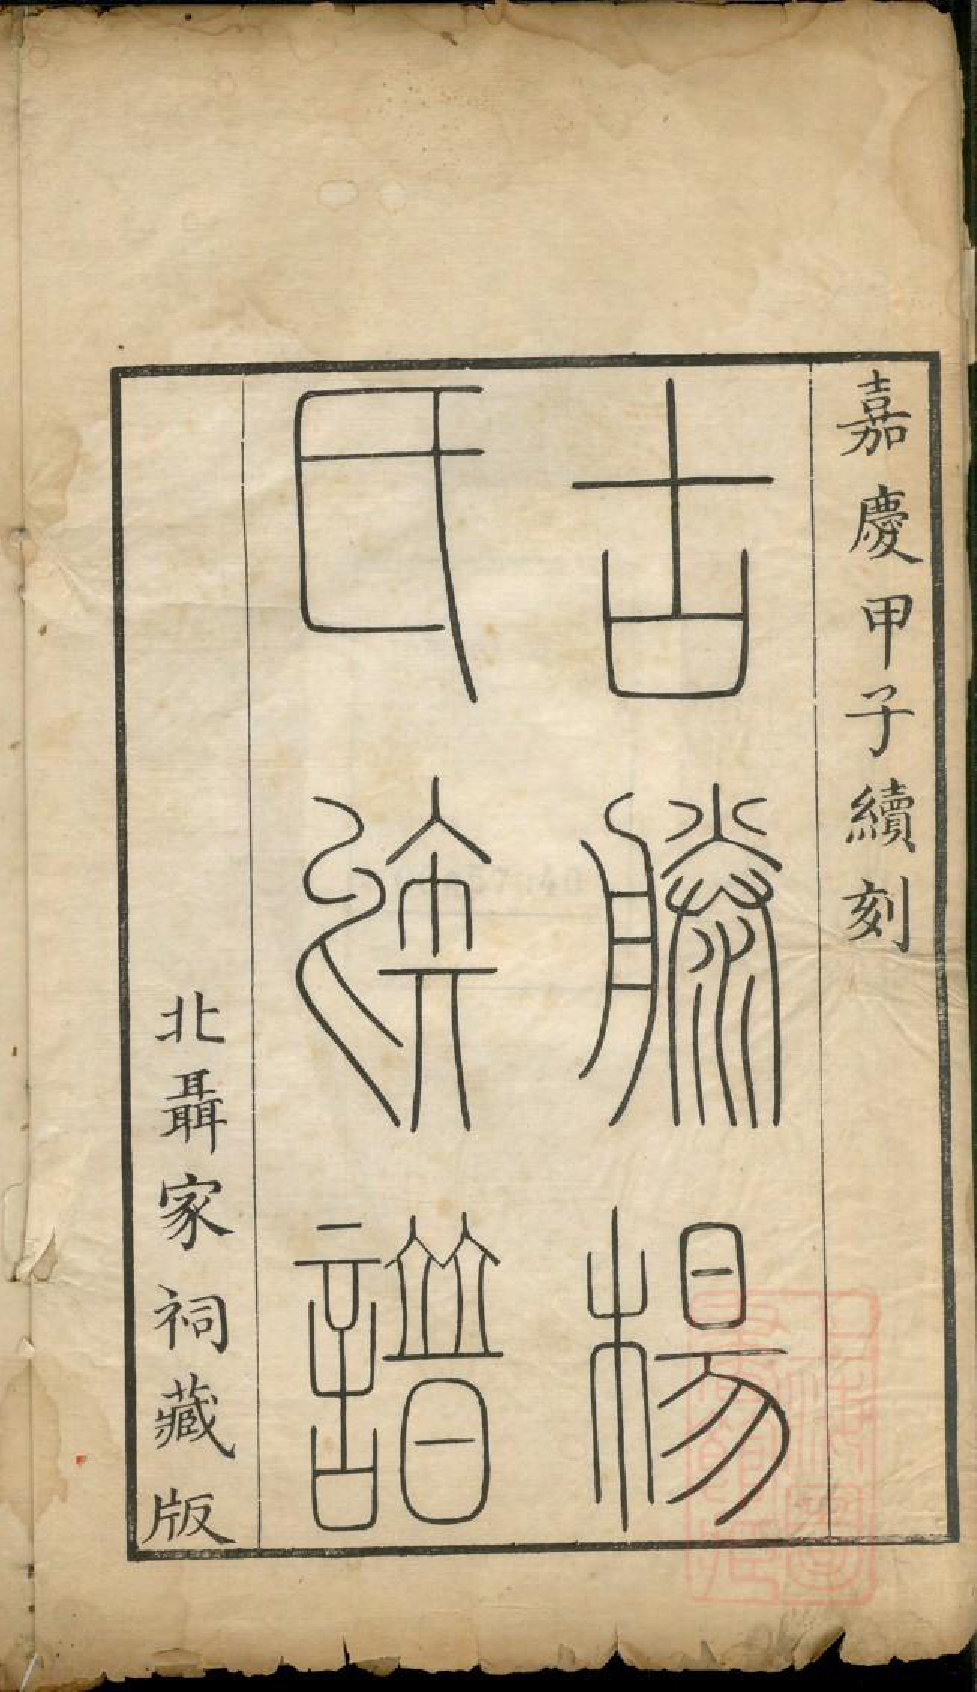 嘉慶甲子續刻
古滕楊
氏族譜
北聶家祠藏版